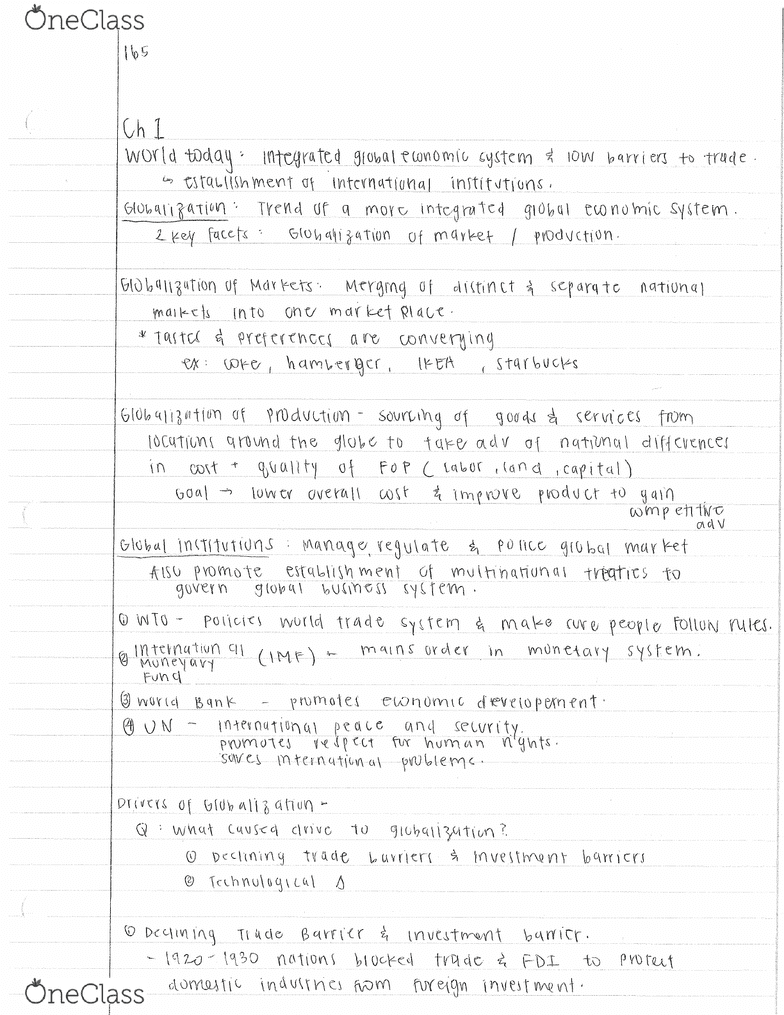 OneClass
165
Ch 1
World today: integrated global economic system & low barriers to trade.
↳ establishment of international institutions.
Globalization: Trend of a more integrated global economic system.
2 key facets: Globalization of market / production.
Globalization of Markets: Merging of distinct & separate national
markets into one market place.
* Tastes & preferences are converging
ex: coke, hamberger, IKEA, starbucks
Globalization of production - sourcing of goods & services from
locations around the globe to take adv of national differences
in cost + quality of FOP (labor, land, capital)
Goal → lower overall cost & improve product to gain
competitive
adv
Global institutions: manage, regulate & police global market
Also promote establishment of multinational treaties to
govern global business system.
① WTO - policies world trade system & make sure people follow rules.
② International
Moneyary (IMF) - mains order in monetary system.
Fund
③ World Bank - promotes economic developement.
④ UN - international peace and security.
promotes respect for human rights.
solves international problems.
Drivers of Globalization -
Q: what caused drive to globalization?
① Declining trade barriers & investment barriers
② Technological Δ
① Declining Trade Barrier & investment barrier.
- 1920-1930 nations blocked trade & FDI to protect
domestic industries from foreign investment.
OneClass